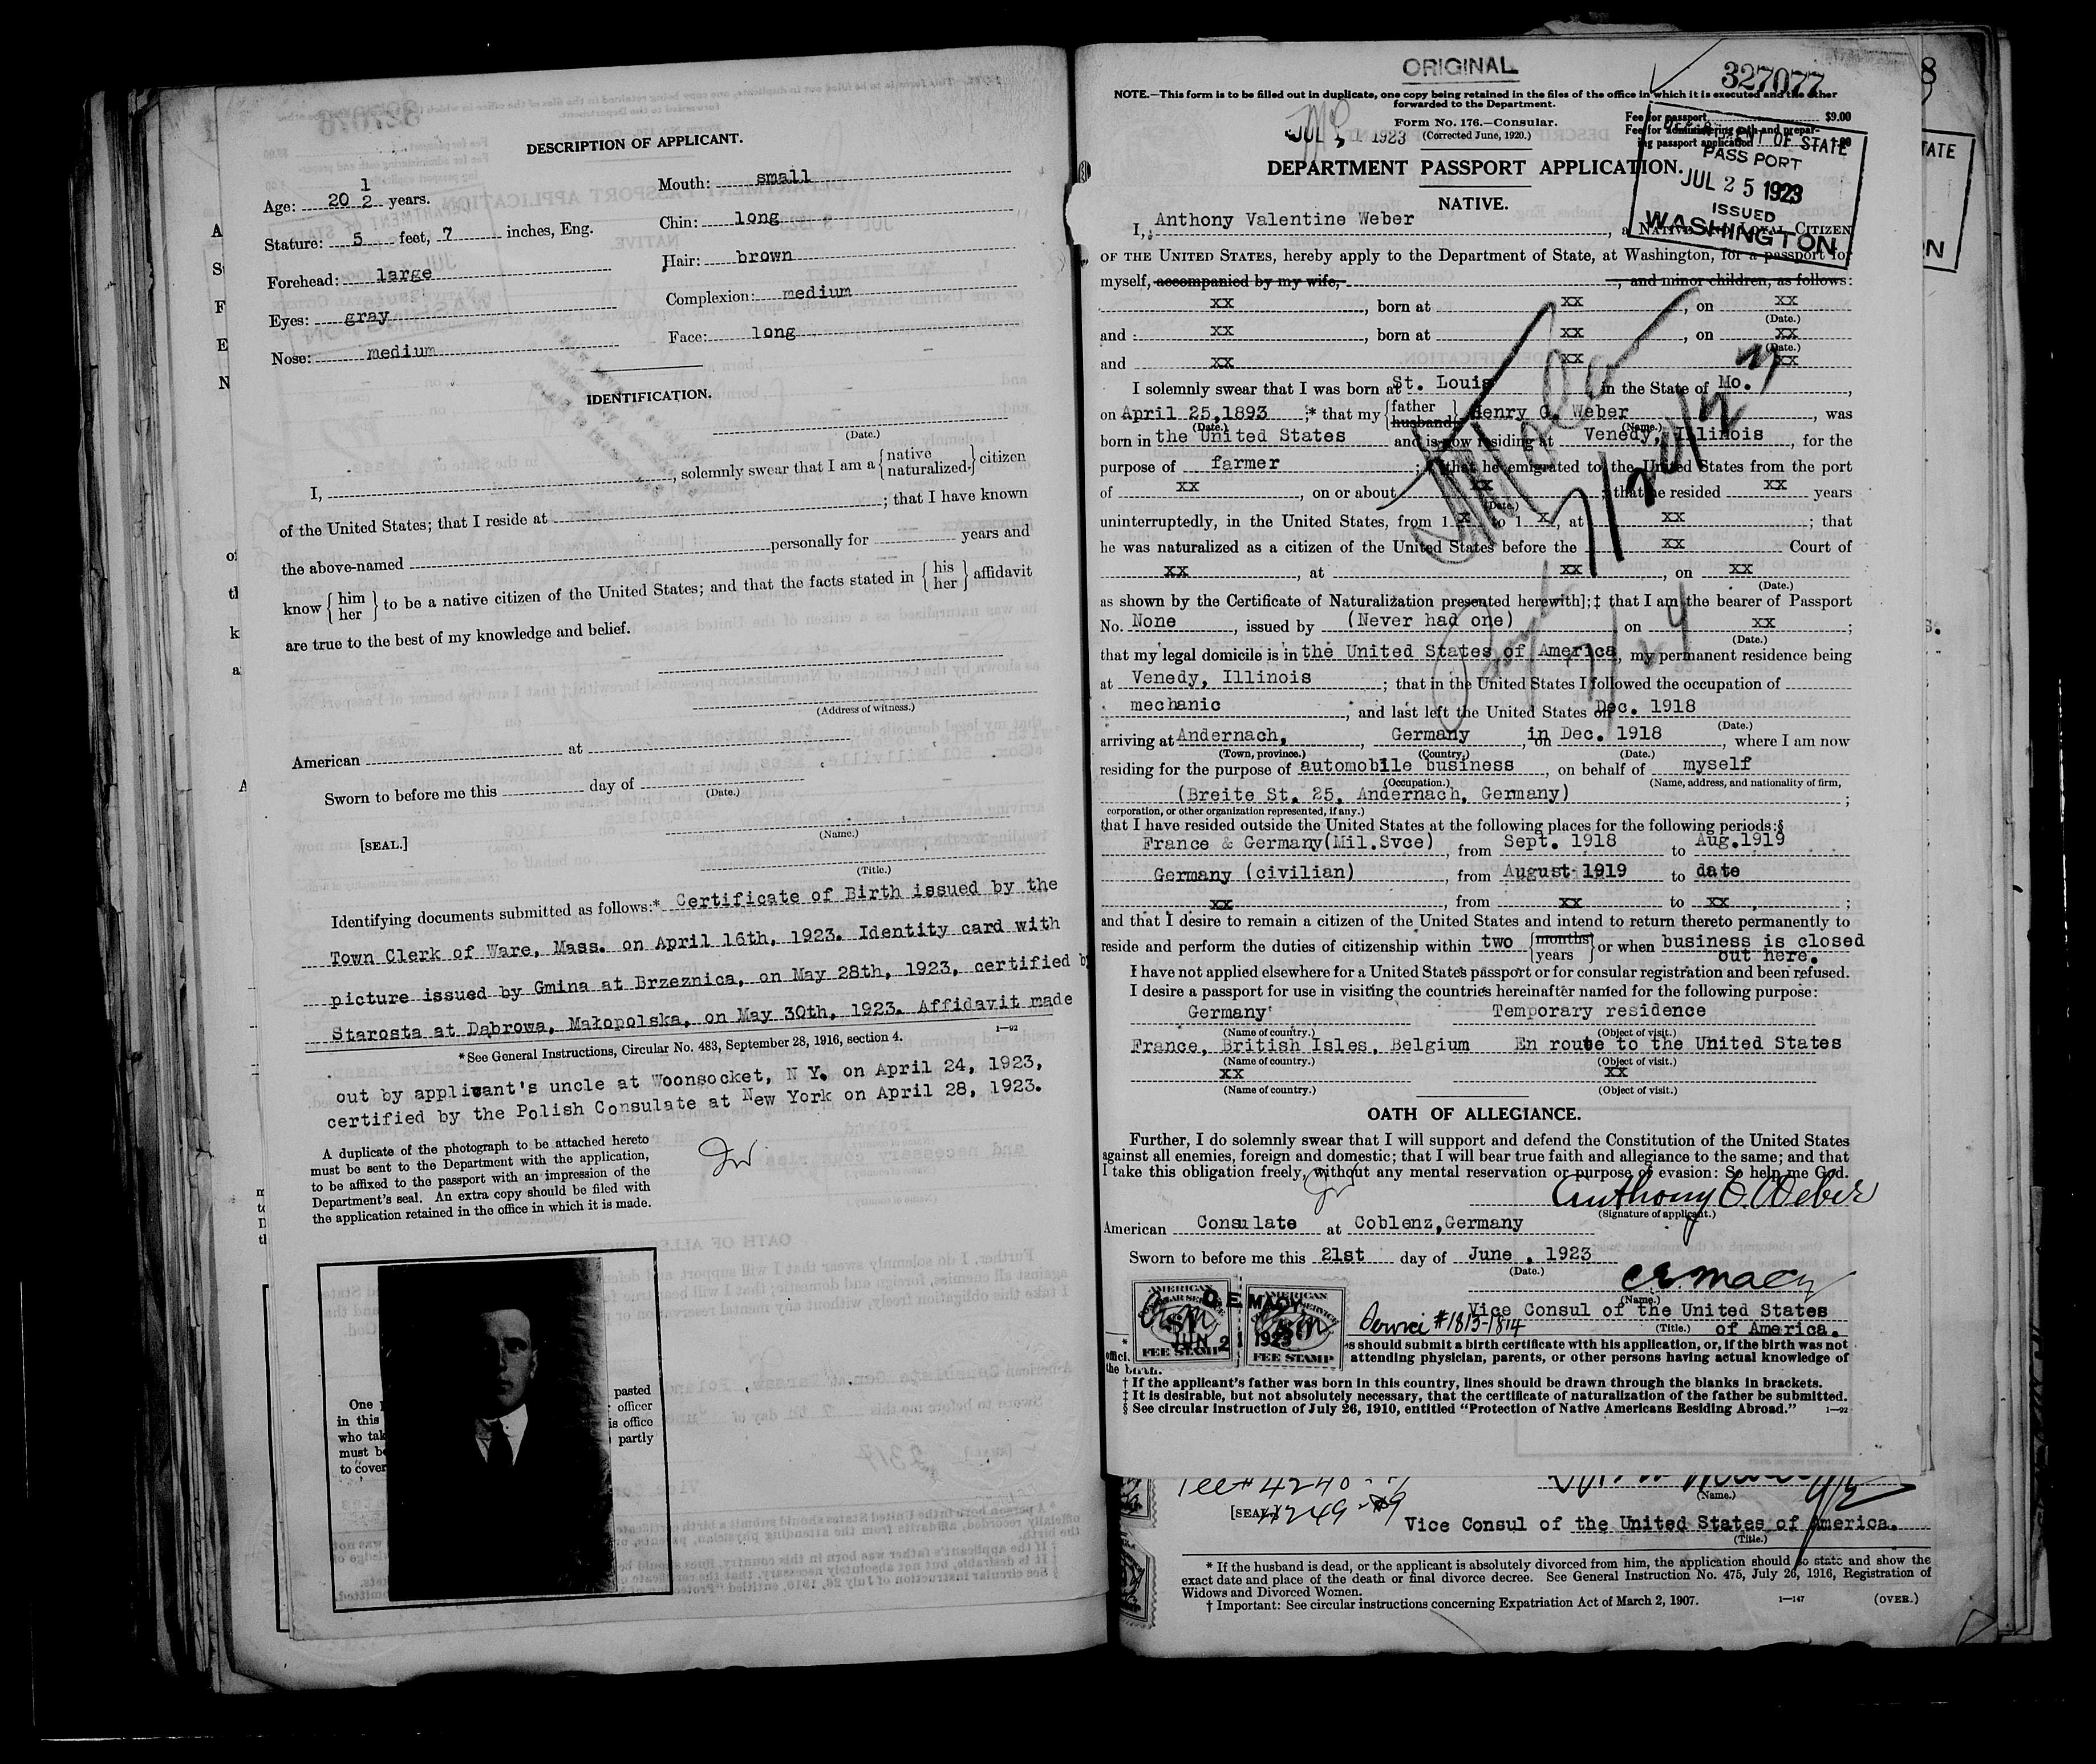 DESCRIPTION OF APPLICANT.
Age: 20 1/2 years.
Stature: 5 feet, 7 inches, Eng.
Forehead: large
Eyes: gray
Nose: medium
Mouth: small
Chin: long
Hair: brown
Complexion: medium
Face: long
IDENTIFICATION.
(Date.)
I, , solemnly swear that I am a {native naturalized} citizen
of the United States; that I reside at ; that I have known
the above-named personally for years and
know {him her} to be a native citizen of the United States; and that the facts stated in {his her} affidavit
are true to the best of my knowledge and belief.
(Address of witness.)
American at
Sworn to before me this day of
(Date.)
(Name.)
[SEAL.]
(Title.)
Identifying documents submitted as follows:* Certificate of Birth issued by the
Town Clerk of Ware, Mass. on April 16th, 1923. Identity card with
picture issued by Gmina at Brzeznica, on May 28th, 1923, certified by
Starosta at Dąbrowa, Małopolska, on May 30th, 1923. Affidavit made
*See General Instructions, Circular No. 483, September 28, 1916, section 4. 1—92
out by applicant's uncle at Woonsocket, N Y. on April 24, 1923,
certified by the Polish Consulate at New York on April 28, 1923.
A duplicate of the photograph to be attached hereto
must be sent to the Department with the application,
to be affixed to the passport with an impression of the
Department's seal. An extra copy should be filed with
the application retained in the office in which it is made.
One pasted
in this officer
who tak is office
must be partly
to cover
ORIGINAL
327077
NOTE.—This form is to be filled out in duplicate, one copy being retained in the files of the office in which it is executed and the other
forwarded to the Department.
Form No. 176.—Consular.
(Corrected June, 1920.)
JUL 1923
Fee for passport $9.00
Fee for administering oath and prepar-
ing passport application 1.00
DEPARTMENT OF STATE
PASSPORT
JUL 25 1923
ISSUED
WASHINGTON
DEPARTMENT PASSPORT APPLICATION.
NATIVE.
I, Anthony Valentine Weber, a NATIVE AND LOYAL CITIZEN
OF THE UNITED STATES, hereby apply to the Department of State, at Washington, for a passport for
myself, accompanied by my wife, , and minor children, as follows:
xx, born at xx, on xx
(Date.)
and xx, born at xx, on xx
(Date.)
and xx xx xx
I solemnly swear that I was born at St. Louis in the State of Mo.,
on April 25, 1893 ;* that my {father husband} Henry G. Weber, was
(Date.) (Name.)
born in the United States and is now residing at Venedy, Illinois, for the
purpose of farmer; that he emigrated to the United States from the port
of xx, on or about xx; that he resided xx years
(Date.)
uninterruptedly, in the United States, from 1 x to 1 x, at xx; that
he was naturalized as a citizen of the United States before the xx Court of
xx, at xx, on xx
(Date.)
as shown by the Certificate of Naturalization presented herewith];‡ that I am the bearer of Passport
No. None, issued by (Never had one) on xx;
(Date.)
that my legal domicile is in the United States of America, my permanent residence being
at Venedy, Illinois; that in the United States I followed the occupation of
mechanic, and last left the United States on Dec. 1918
(Date.)
arriving at Andernach, Germany, in on Dec. 1918, where I am now
(Town, province.) (Country.) (Date.)
residing for the purpose of automobile business, on behalf of myself
(Occupation.) (Name, address, and nationality of firm,
(Breite St. 25, Andernach, Germany);
corporation, or other organization represented, if any.)
that I have resided outside the United States at the following places for the following periods:§
France & Germany(Mil.Svce), from Sept. 1918 to Aug.1919
Germany (civilian), from August 1919 to date
xx, from xx to xx;
and that I desire to remain a citizen of the United States and intend to return thereto permanently to
reside and perform the duties of citizenship within two {months years} or when business is closed
out here.
I have not applied elsewhere for a United States passport or for consular registration and been refused.
I desire a passport for use in visiting the countries hereinafter named for the following purpose:
Germany Temporary residence
(Name of country.) (Object of visit.)
France, British Isles, Belgium En route to the United States
(Name of country.) (Object of visit.)
xx xx
(Name of country.) (Object of visit.)
OATH OF ALLEGIANCE.
Further, I do solemnly swear that I will support and defend the Constitution of the United States
against all enemies, foreign and domestic; that I will bear true faith and allegiance to the same; and that
I take this obligation freely, without any mental reservation or purpose of evasion: So help me God.
Anthony E. Weber
(Signature of applicant.)
American Consulate at Coblenz, Germany
Sworn to before me this 21st day of June, 1923
(Date.)
(Name.)
Vice Consul of the United States
(Title.) of America.
AMERICAN CONSULAR SERVICE
FEE STAMP
AMERICAN
FEE STAMP
JUN 21 1923
#1813-1814
s should submit a birth certificate with his application, or, if the birth was not
offici. attending physician, parents, or other persons having actual knowledge of
the birth.
† If the applicant's father was born in this country, lines should be drawn through the blanks in brackets.
‡ It is desirable, but not absolutely necessary, that the certificate of naturalization of the father be submitted.
§ See circular instruction of July 26, 1910, entitled “Protection of Native Americans Residing Abroad.” 1—92
(Name.)
[SEAL.]
Vice Consul of the United States of America.
(Title.)
* If the husband is dead, or the applicant is absolutely divorced from him, the application should so state and show the
exact date and place of the death or final divorce decree. See General Instruction No. 475, July 26, 1916, Registration of
Widows and Divorced Women.
† Important: See circular instructions concerning Expatriation Act of March 2, 1907. 1—147 (OVER.)